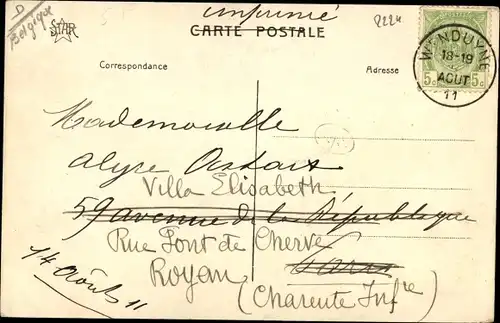 D
Belgique
STAR
imprimé
CARTE POSTALE
8224
WENDUYNE
18-19
AOUT
11
5c 5c
Correspondance
Adresse
Mademoiselle
Alyse
Villa Elisabeth
59 avenue de la République
Rue Font de Cherve
Paris
Royan
(Charente Infre)
14 Août 11